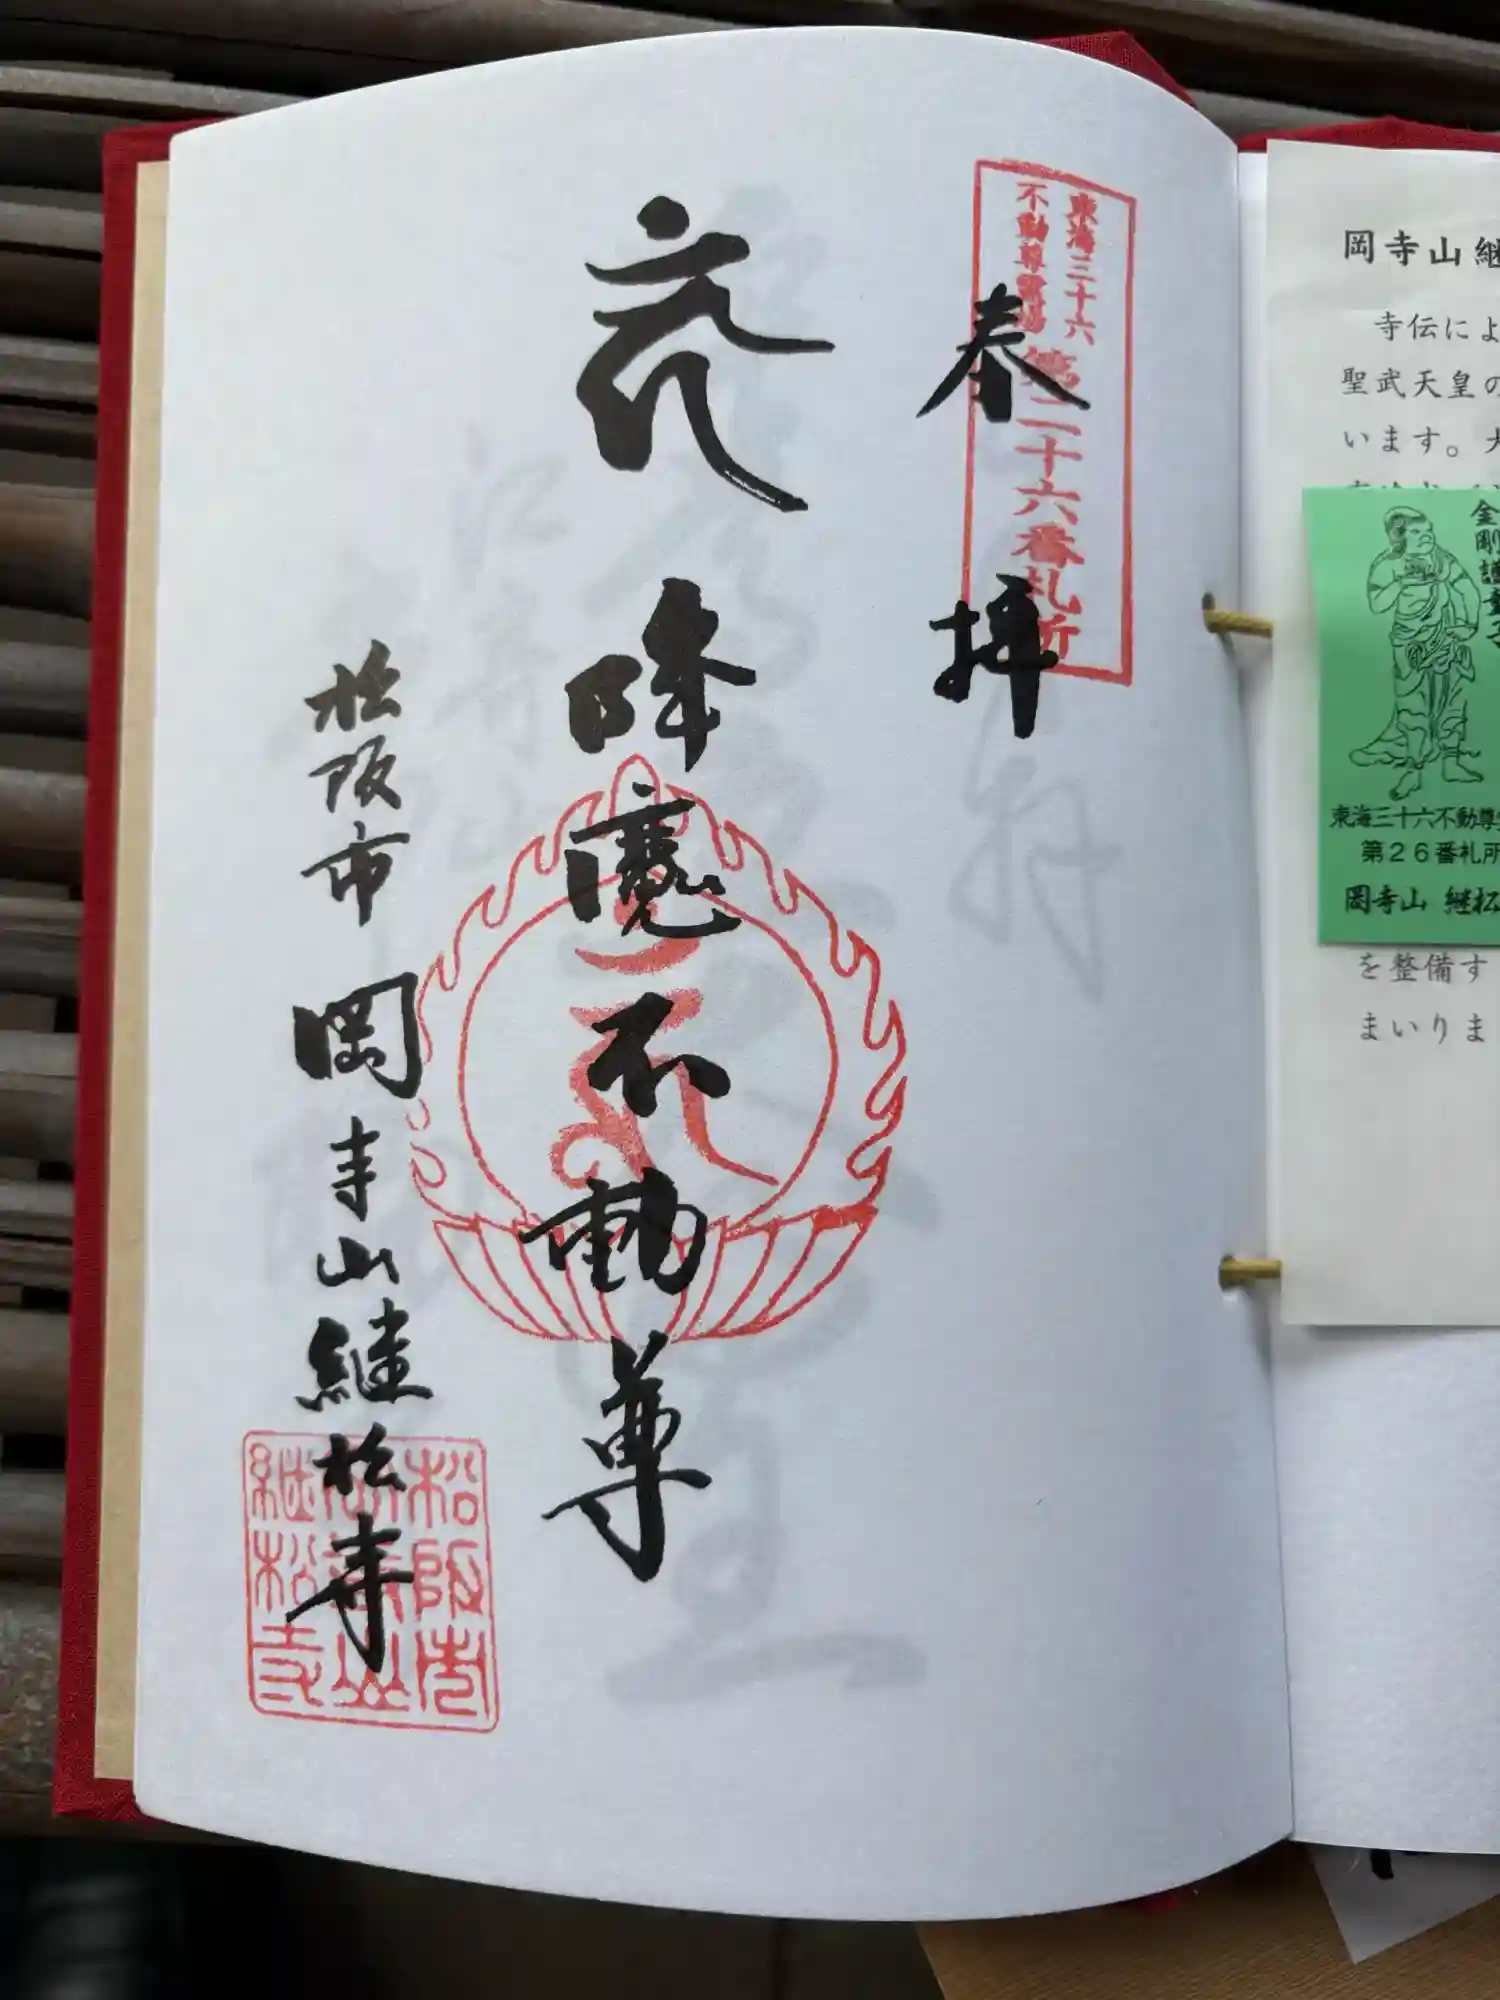 東海三十六
不動尊霊場
第二十六番札所
奉拝
降魔不動尊
松阪市 岡寺山継松寺
松阪市
岡寺山
継松寺
岡寺山 継
寺伝によ
聖武天皇の
います。
金剛護童子
東海三十六不動尊
第26番札所
岡寺山 継松
を整備す
まいりま